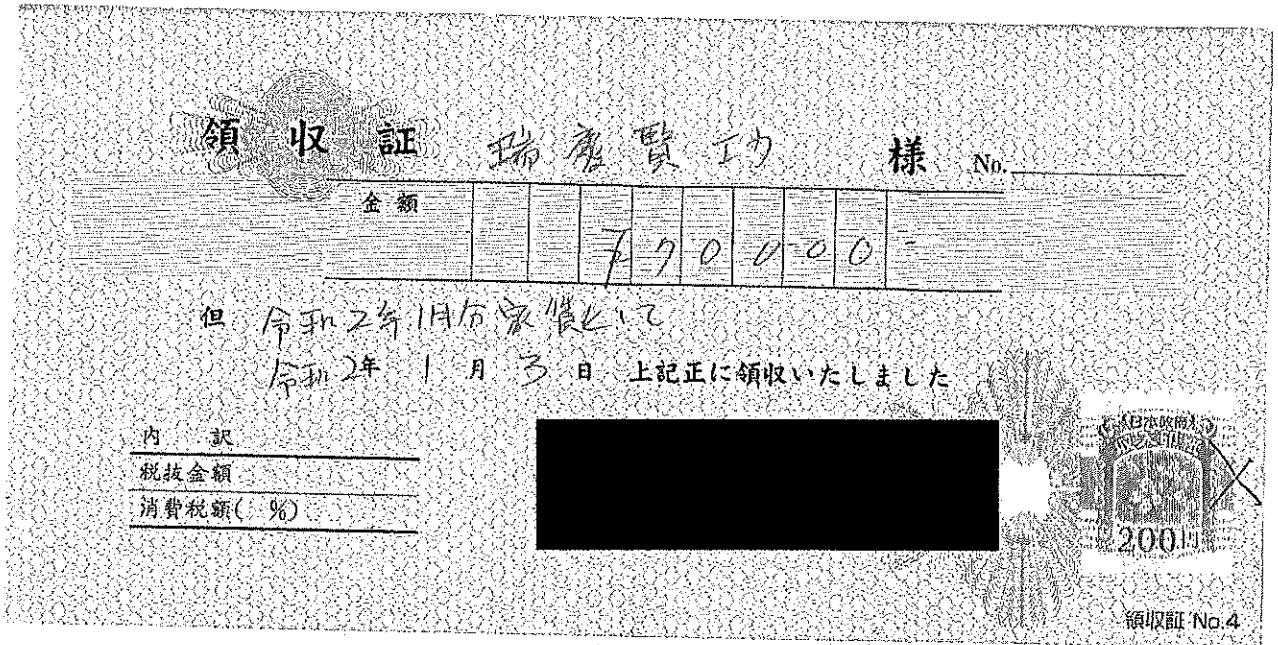 領収証 瑞慶覧 功 様 No.
金額
¥70000-
但 令和2年1月分家賃として
令和2年 1 月 3 日 上記正に領収いたしました
内 訳
税抜金額
消費税額( %)
日本政府
収入印紙
200円
領収証 No.4